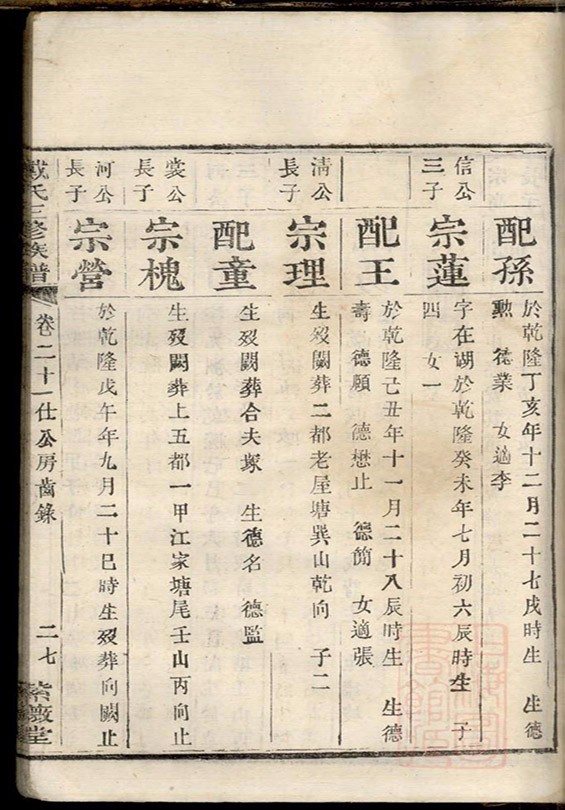 配孫
於乾隆丁亥年十二月二十七戌時生 生德
勲 德業 女適李
信公
三子
宗蓮
字在湖於乾隆癸未年七月初六辰時生 子
四 女一
配王
於乾隆己丑年十一月二十八辰時生 生德
壽 德願 德懋止 德簡 女適張
清公
長子
宗理
生歿闕葬二都老屋塘巽山乾向 子二
配童
生歿闕葬合夫塚 生德名 德監
裳公
長子
宗槐
生歿闕葬上五都一甲江家塘尾壬山丙向止
河公
長子
宗營
於乾隆戊午年九月二十巳時生歿葬向闕止
戴氏三修族譜 卷二十一仕公房齒錄 二七 紫薇堂